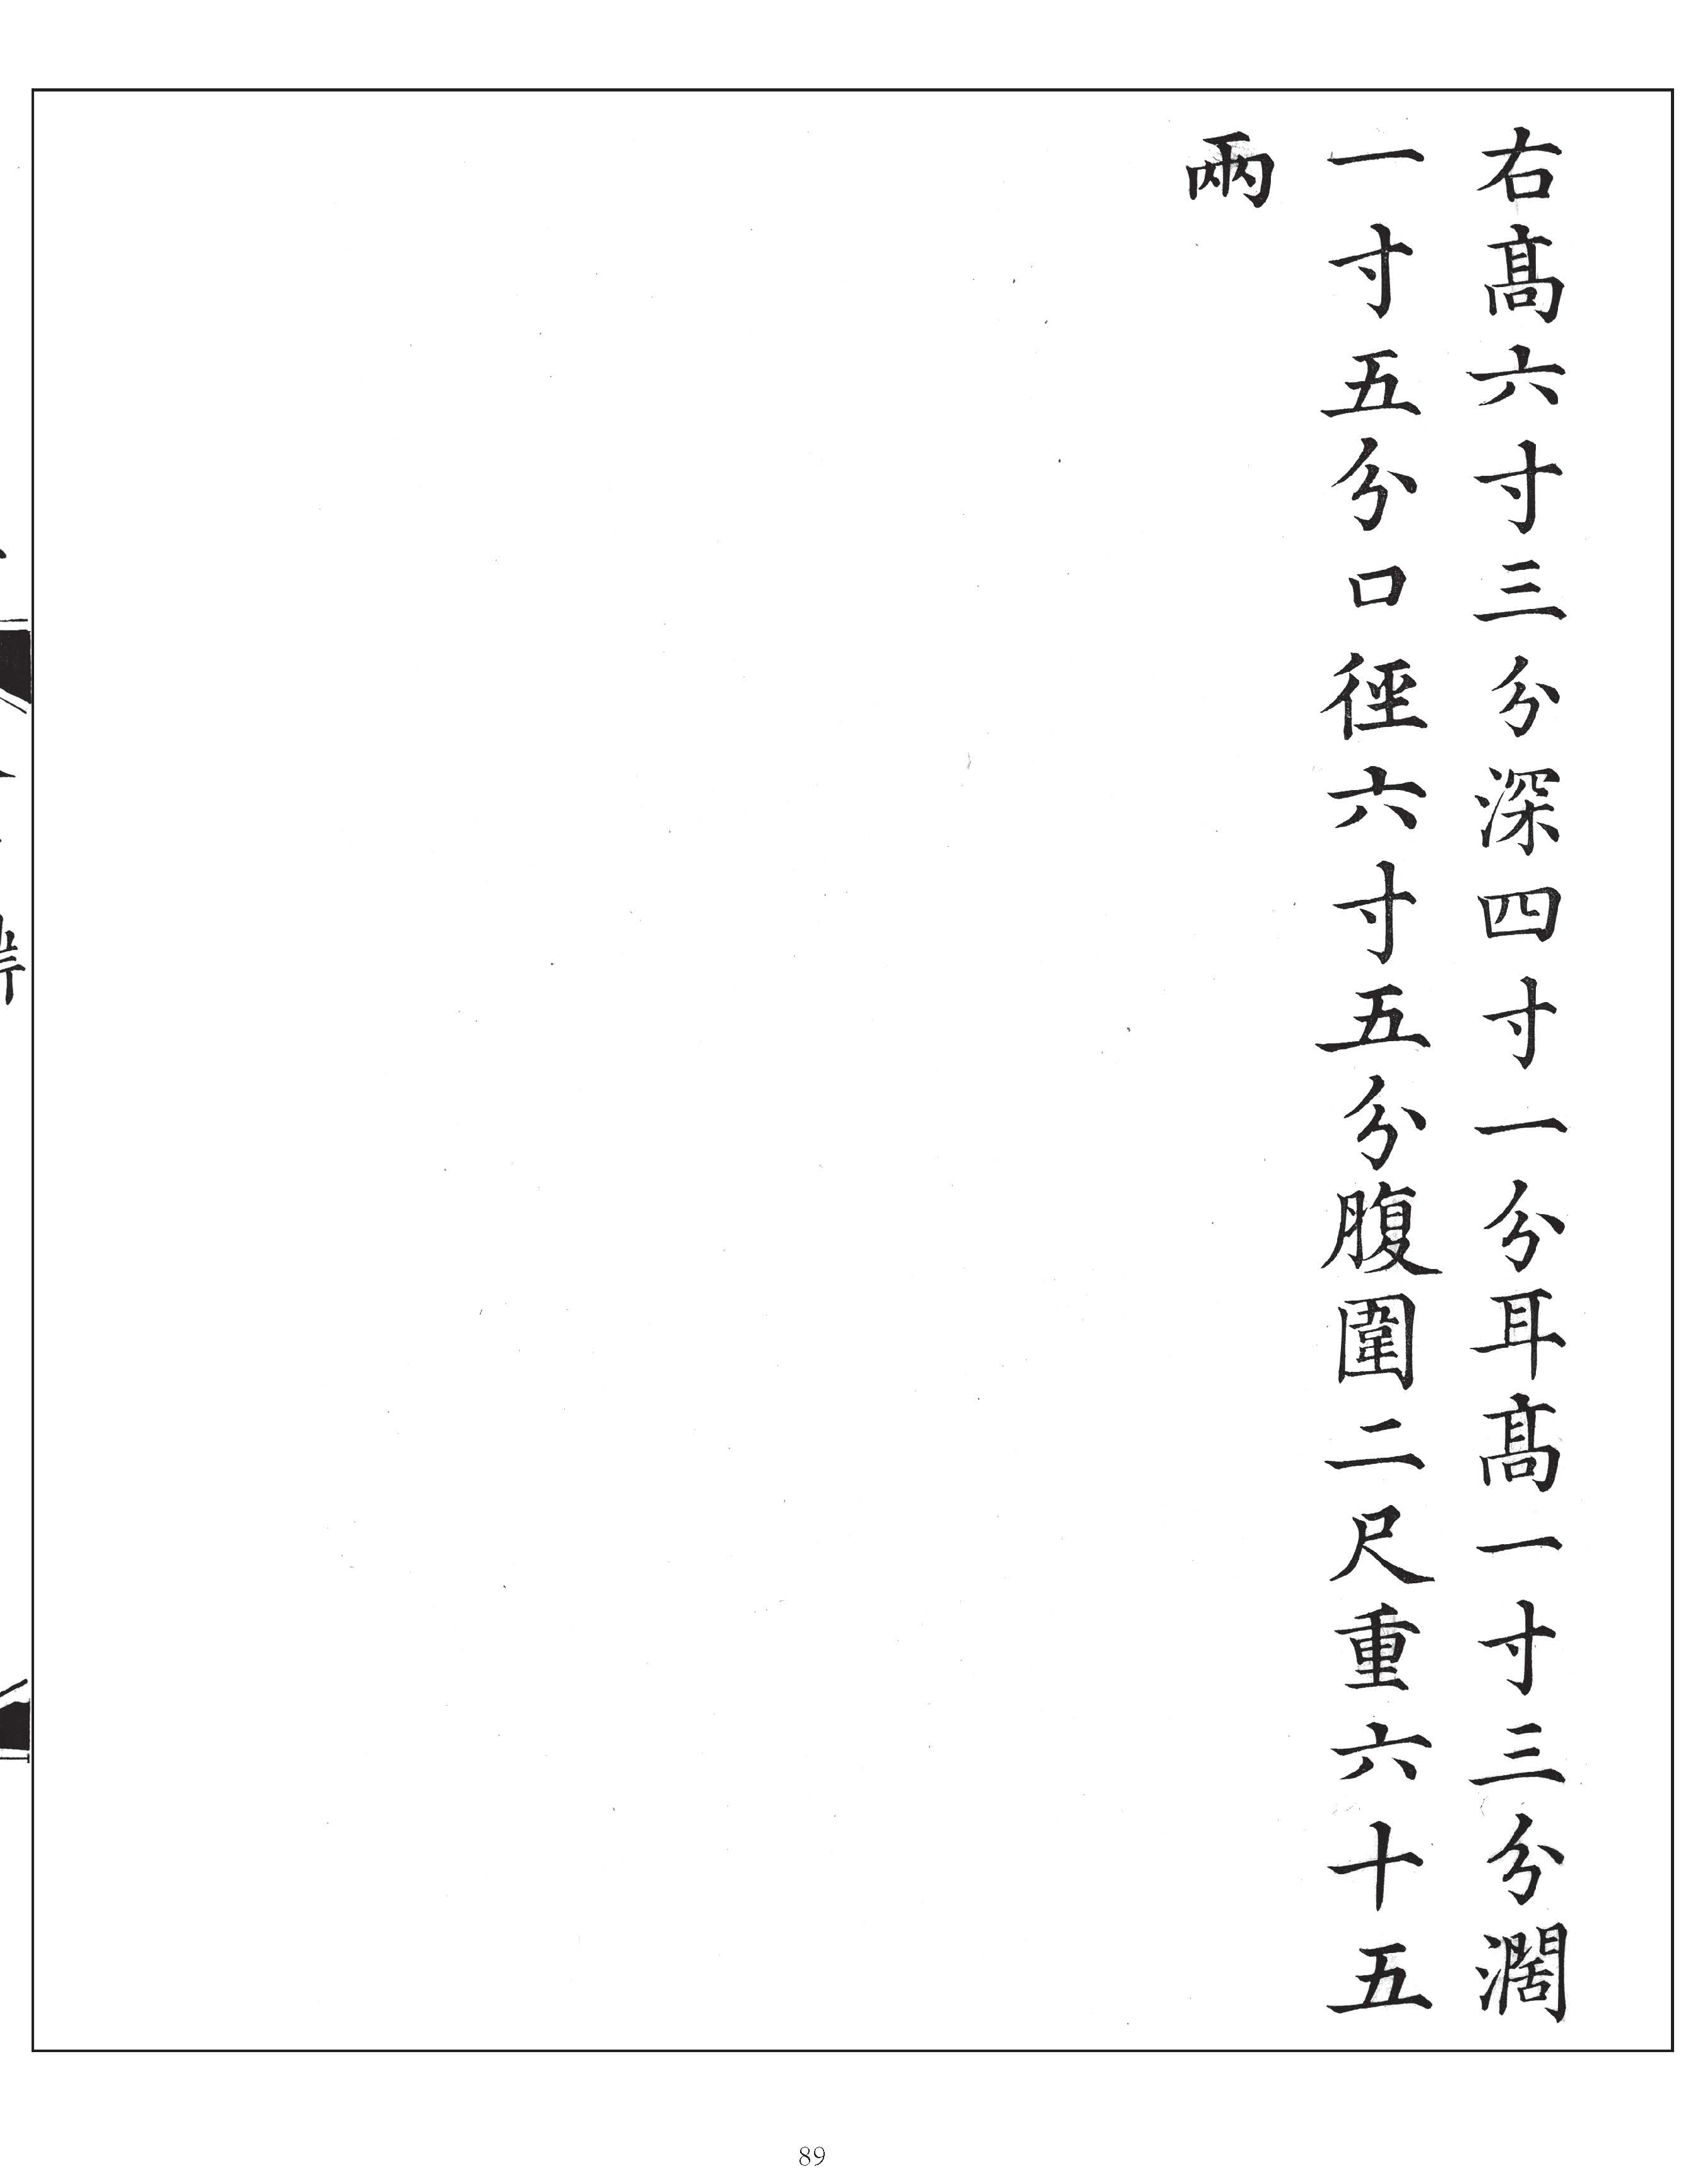 右髙六寸三分深四寸一分耳髙一寸三分濶
一寸五分口徑六寸五分腹圍二尺重六十五
兩
89